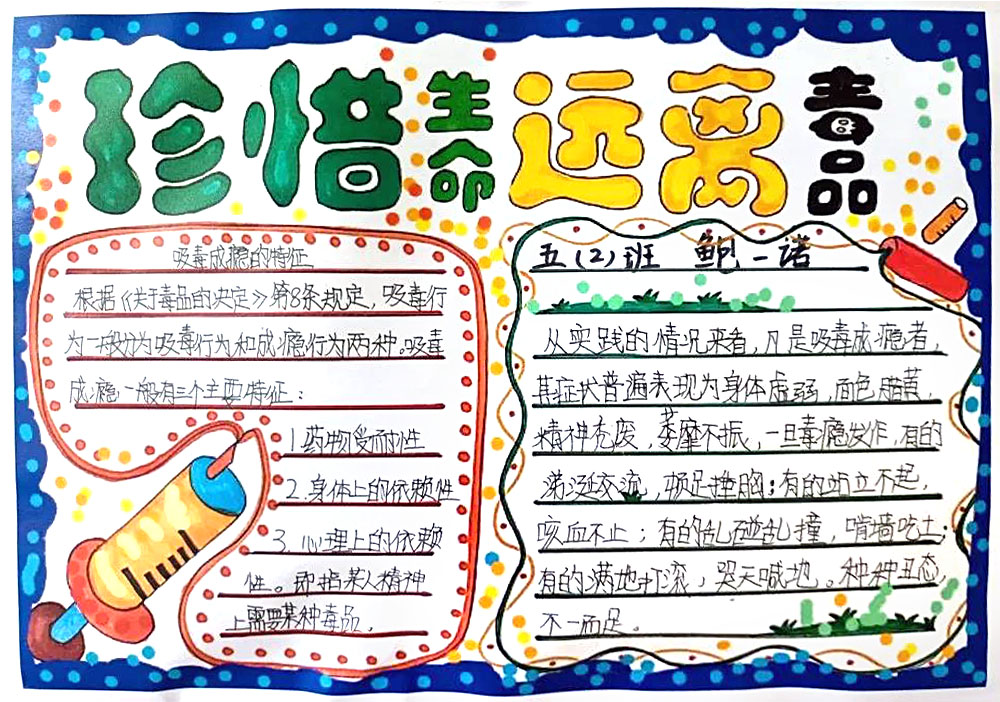 珍惜生命 远离毒品
吸毒成瘾的特征
根据《关于毒品的决定》第8条规定，吸毒行
为一般分为吸毒行为和成瘾行为两种。吸毒
成瘾一般有三个主要特征：
1.药物受耐性
2.身体上的依赖性
3.心理上的依赖
性。即指某人精神
上需要某种毒品.
五(2)班 鲍一诺
从实践的情况来看，凡是吸毒成瘾者，
其症状普遍表现为身体虚弱，面色腊黄，
精神充废，萎靡不振，一旦毒瘾发作，有的
涕涎交流，顿足捶胸；有的站立不起，
咳血不止；有的乱碰乱撞，啃墙吃土；
有的满地打滚，哭天喊地。种种丑态，
不一而足。